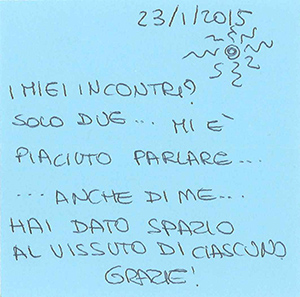 23/1/2015
I MIEI INCONTRI?
SOLO DUE... MI È
PIACIUTO PARLARE...
... ANCHE DI ME...
HAI DATO SPAZIO
AL VISSUTO DI CIASCUNO
GRAZIE!